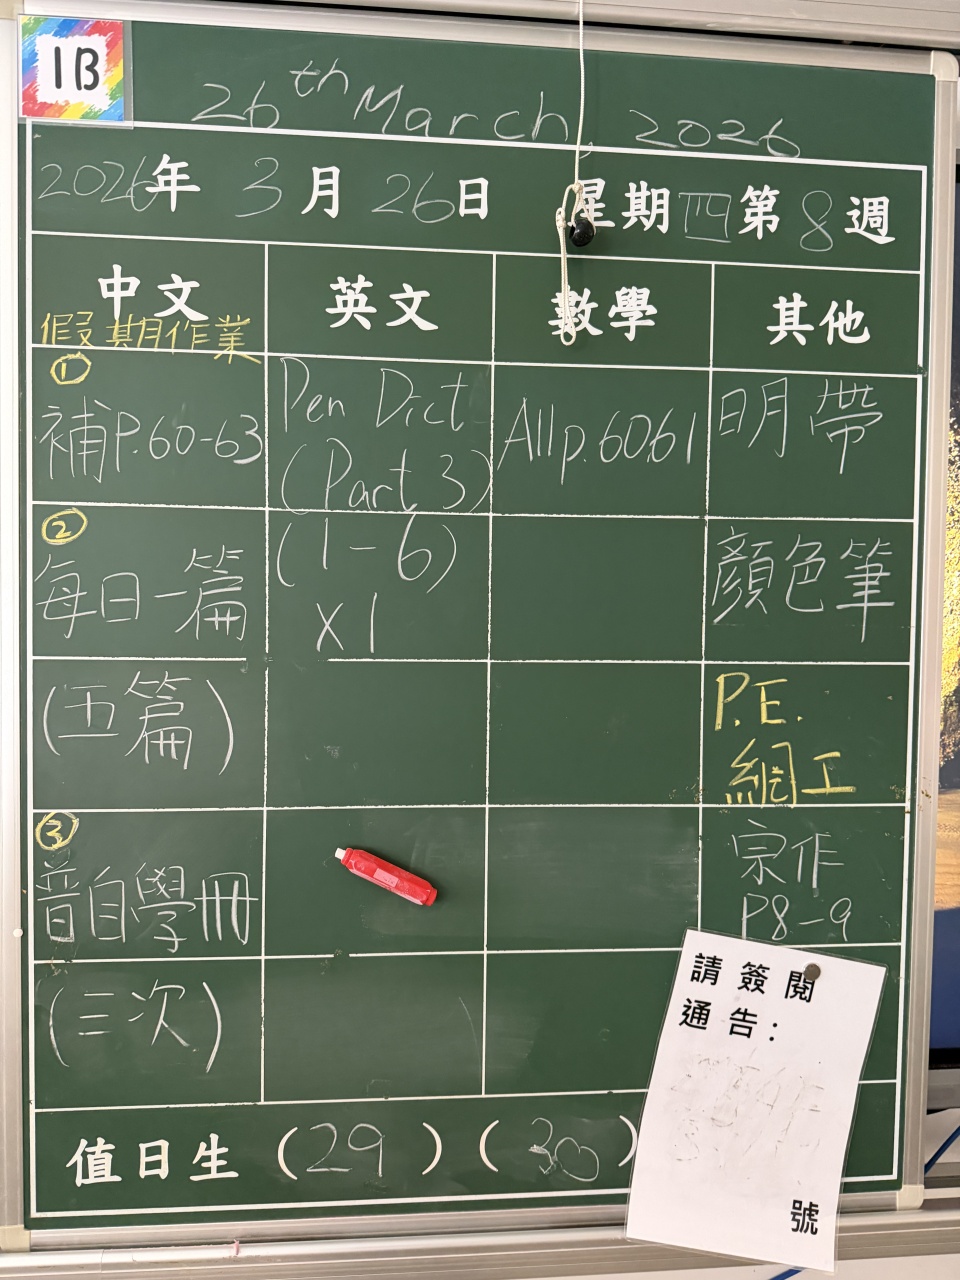 1B
26th March, 2026
2026年 3月 26日 星期四 第8週
中文 英文 數學 其他
假期作業
①
補P.60-63
②
每日一篇
(五篇)
③
普自學冊
(三次)
Pen Dict
(Part 3)
(1-6)
x1
All p.60.61
明帶
顏色筆
P.E.
網工
宗作
P8-9
值日生 (29) (30)
請簽閱
通告:
號